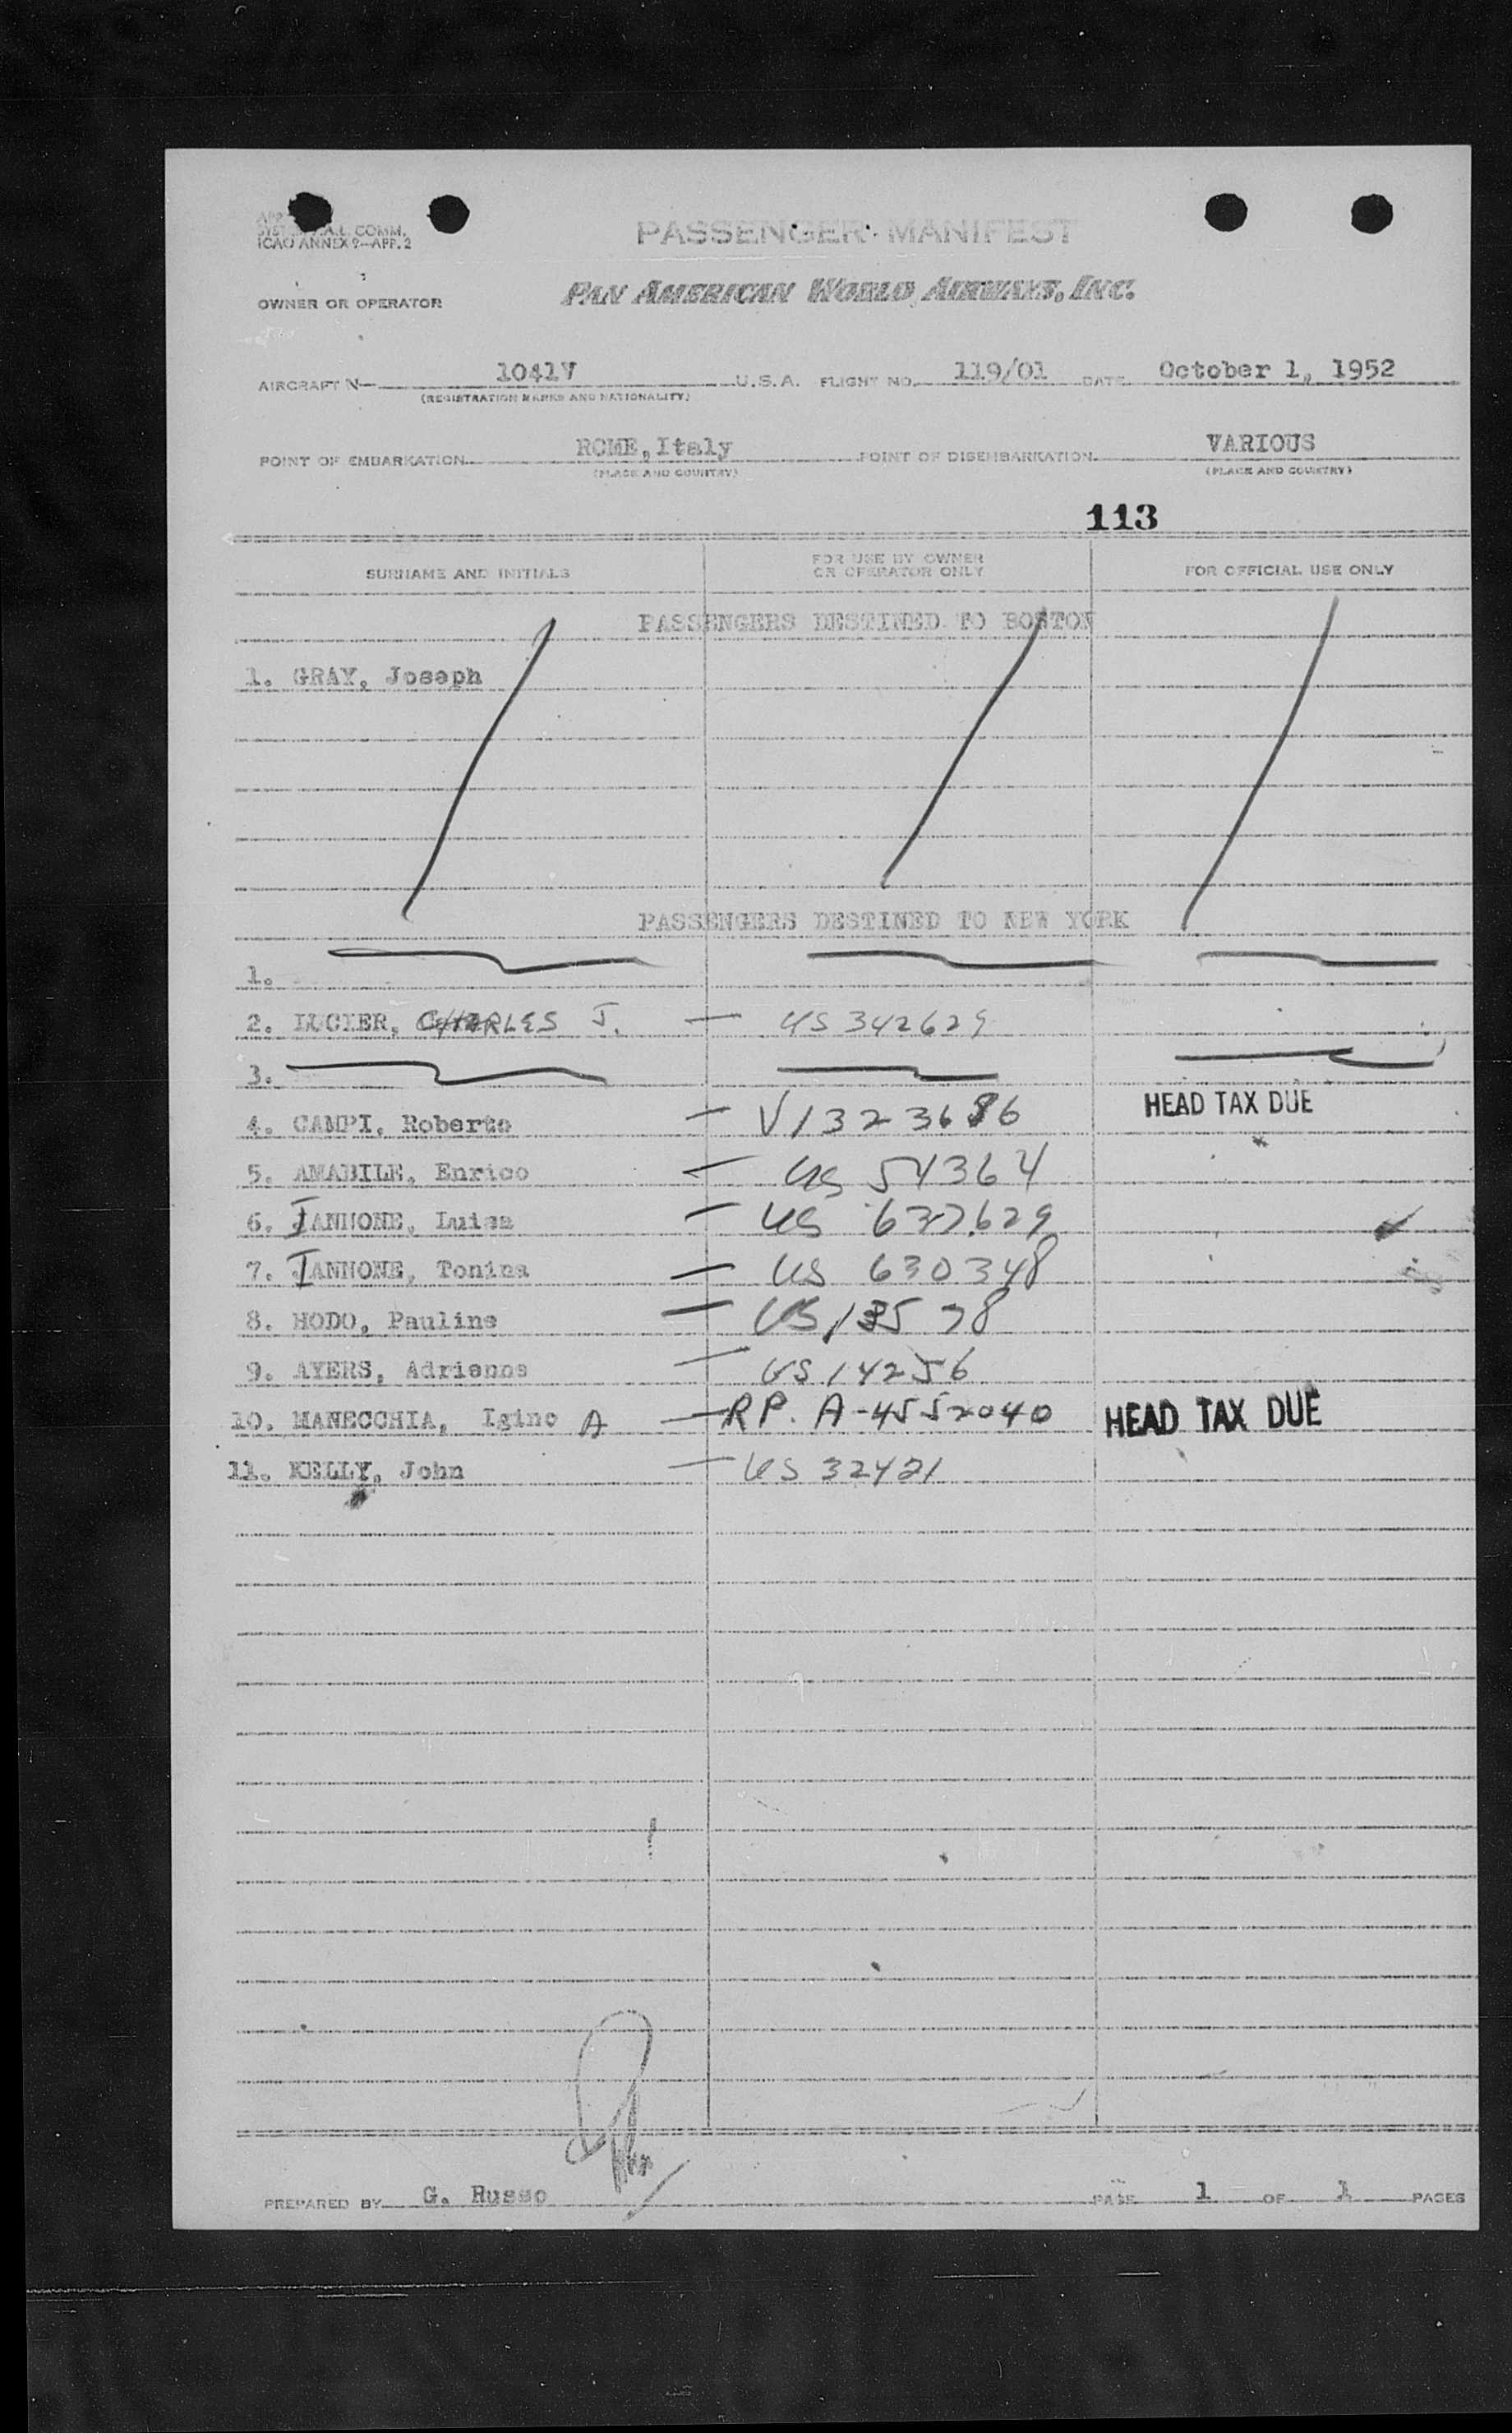 SYST A.L. COMM.
ICAO ANNEX 9—APP. 2
PASSENGER MANIFEST
OWNER OR OPERATOR
PAN AMERICAN WORLD AIRWAYS, INC.
AIRCRAFT N— 1041V U.S.A. FLIGHT NO. 119/01 DATE October 1, 1952
(REGISTRATION MARKS AND NATIONALITY)
POINT OF EMBARKATION ROME, Italy POINT OF DISEMBARKATION VARIOUS
(PLACE AND COUNTRY) (PLACE AND COUNTRY)
113
SURNAME AND INITIALS FOR USE BY OWNER OR OPERATOR ONLY FOR OFFICIAL USE ONLY
PASSENGERS DESTINED TO BOSTON
1. GRAY, Joseph
PASSENGERS DESTINED TO NEW YORK
1.
2. LUCIER, CHARLES J. — US 342629
3.
4. CAMPI, Roberto — V1323686 HEAD TAX DUE
5. AMABILE, Enrico — US 54364
6. IANNONE, Luisa — US 637629
7. IANNONE, Tonina — US 630348
8. HODO, Pauline — US 13578
9. AYERS, Adrienne — US 14256
10. MANECCHIA, Igino A — RP. A-4552040 HEAD TAX DUE
11. KELLY, John — US 32421
PREPARED BY G. Russo PAGE 1 OF 1 PAGES